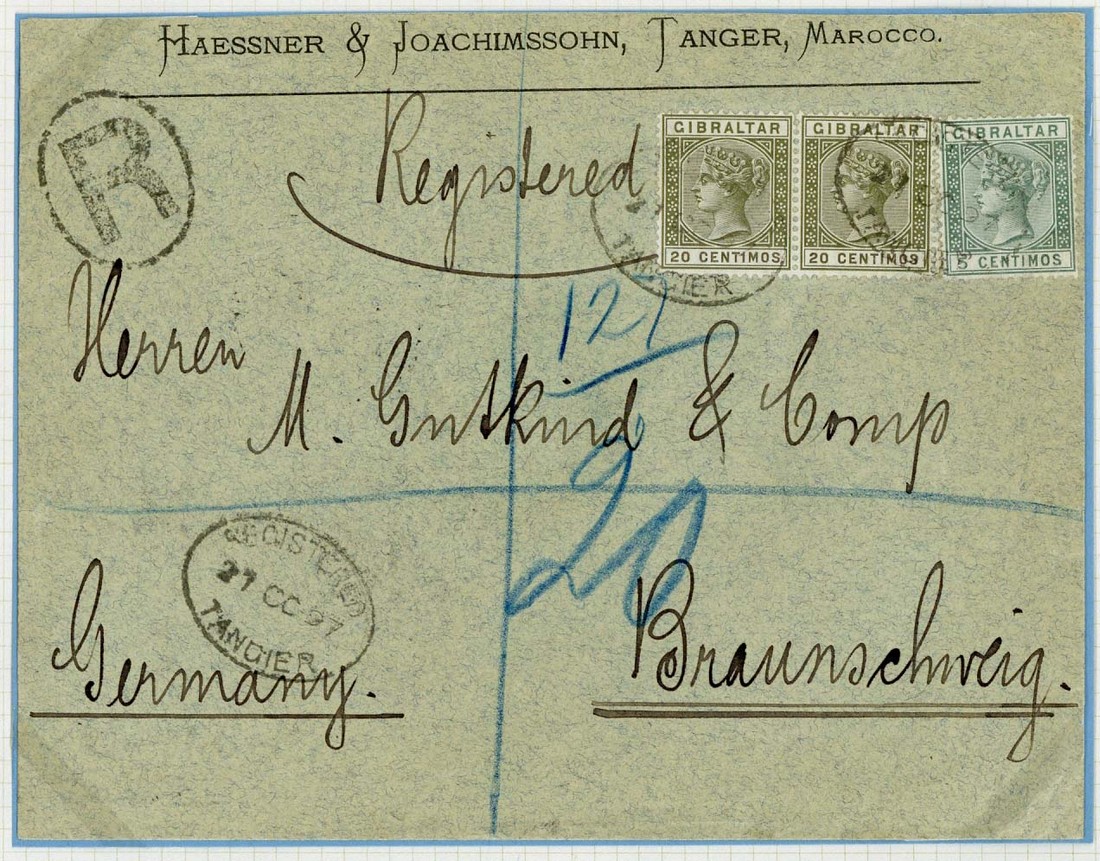 HAESSNER & JOACHIMSSOHN, TANGER, MAROCCO.
R
Registered
GIBRALTAR
20 CENTIMOS
GIBRALTAR
20 CENTIMOS
GIBRALTAR
5 CENTIMOS
TANGIER
127
Herren
M. Gutkind & Comp
20
REGISTERED
27 OC 97
TANGIER
Germany.
Braunschweig.